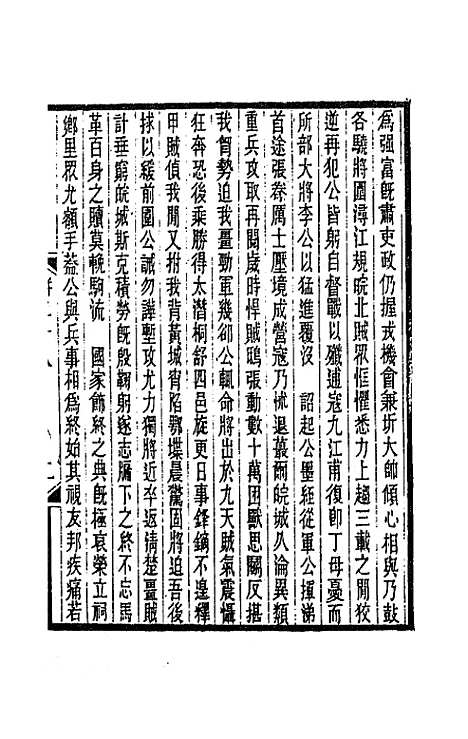 爲强富旣肅吏政仍握戎機會秉圻大帥傾心相與乃鼓
各驍將圖潯江規皖北賊眾恇懼悉力上趨三載之閒狡
逆再犯公皆躬自督戰以殲逋寇九江甫復卽丁母憂而
所部大將李公以猛進覆沒　詔起公墨絰從軍公揮涕
首途張拳厲士壓境成營寇乃怵退蕞爾皖城久淪異類
重兵攻取再閱歲時悍賊鴟張動數十萬困獸思鬭反揕
我胷勢迫我畺勁軍幾卻公輒命將出於九天賊氣震懾
狂奔恐後乘勝得太潛桐舒四邑旋更日事鋒鏑不遑釋
甲賊偵我閒又拊我背黃城宵陷鄂堞晨驚固將迫吾後
捄以緩前圍公誡勿譁壍攻尤力獨將近卒返淸楚畺賊
計垂窮皖城斯克積勞旣殷鞠躬遂志牖下之終不忘馬
革百身之贖莫輓駒流　國家飾終之典旣極哀榮立祠
鄉里眾尤額手葢公與兵事相爲終始其視友邦疾痛若